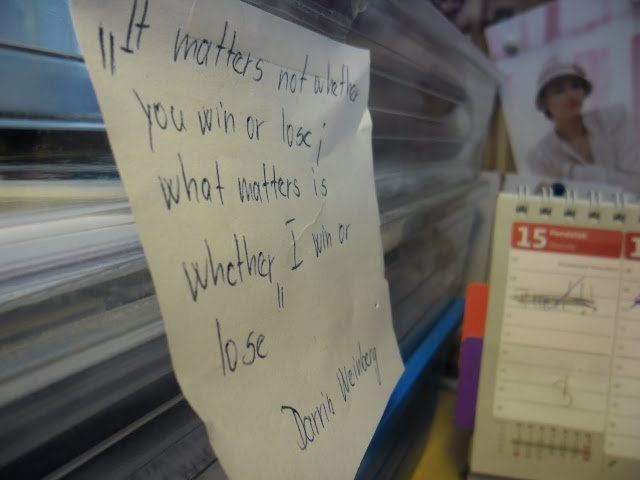 "It matters not whether
you win or lose;
what matters is
whether I win or
lose"
Darrin Weinberg
15